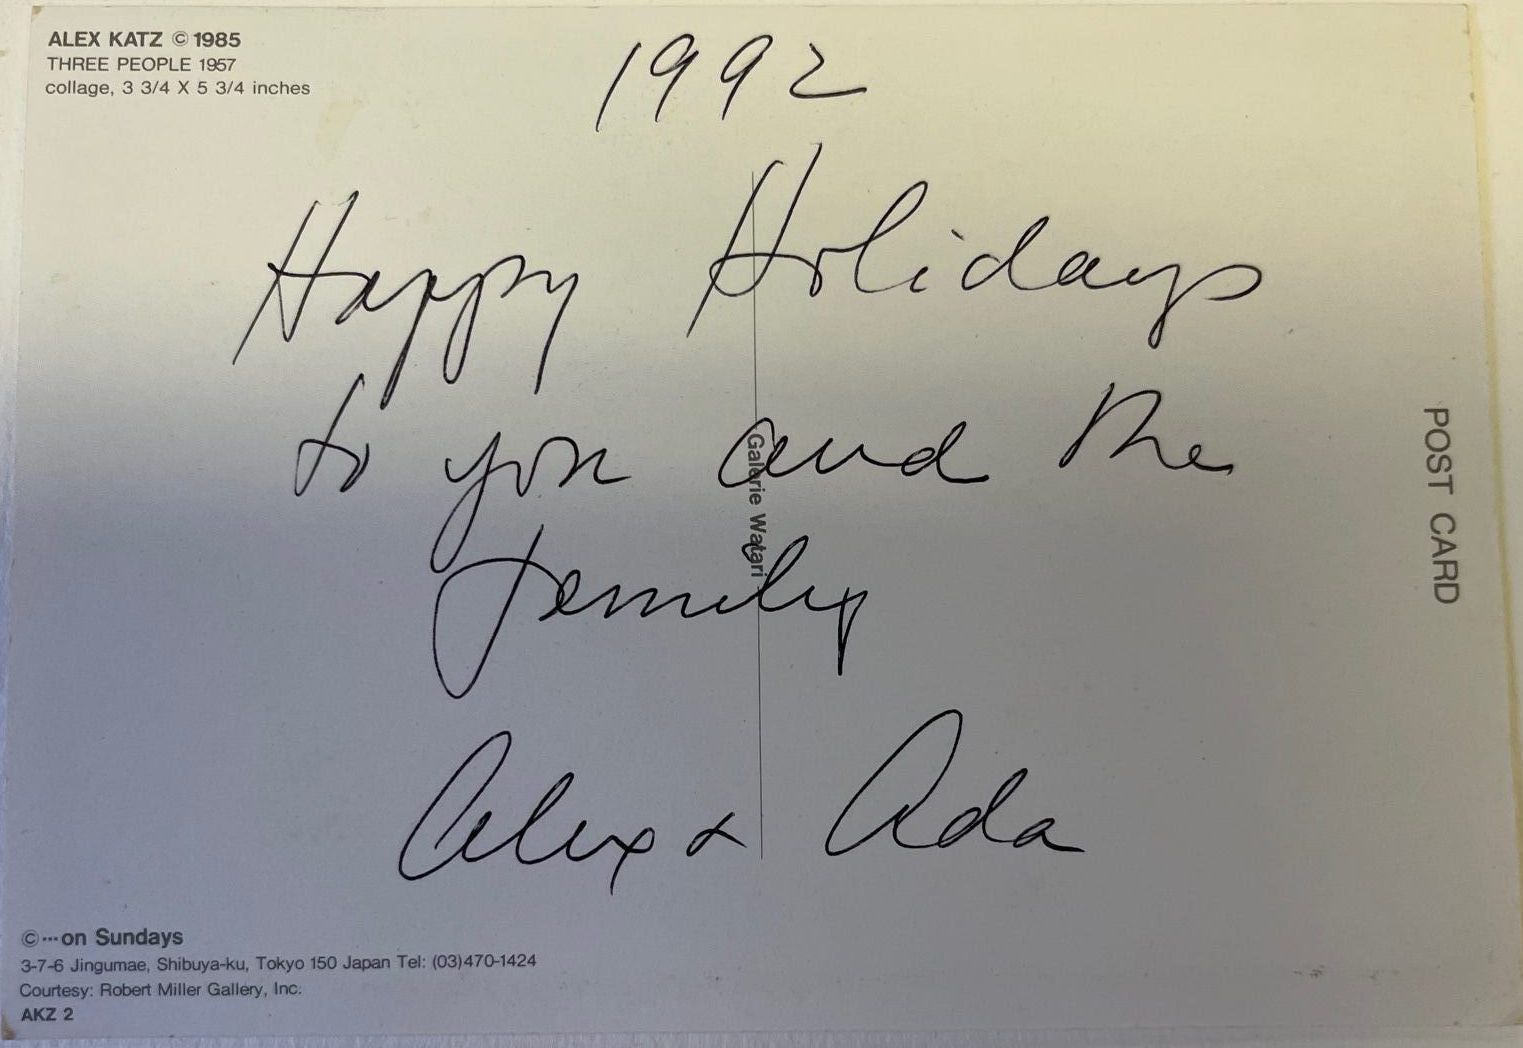 ALEX KATZ © 1985
THREE PEOPLE 1957
collage, 3 3/4 X 5 3/4 inches
1992
Happy Holidays
to you and the
family
Alex + Ada
Galerie Watari
POST CARD
©···on Sundays
3-7-6 Jingumae, Shibuya-ku, Tokyo 150 Japan Tel: (03)470-1424
Courtesy: Robert Miller Gallery, Inc.
AKZ 2